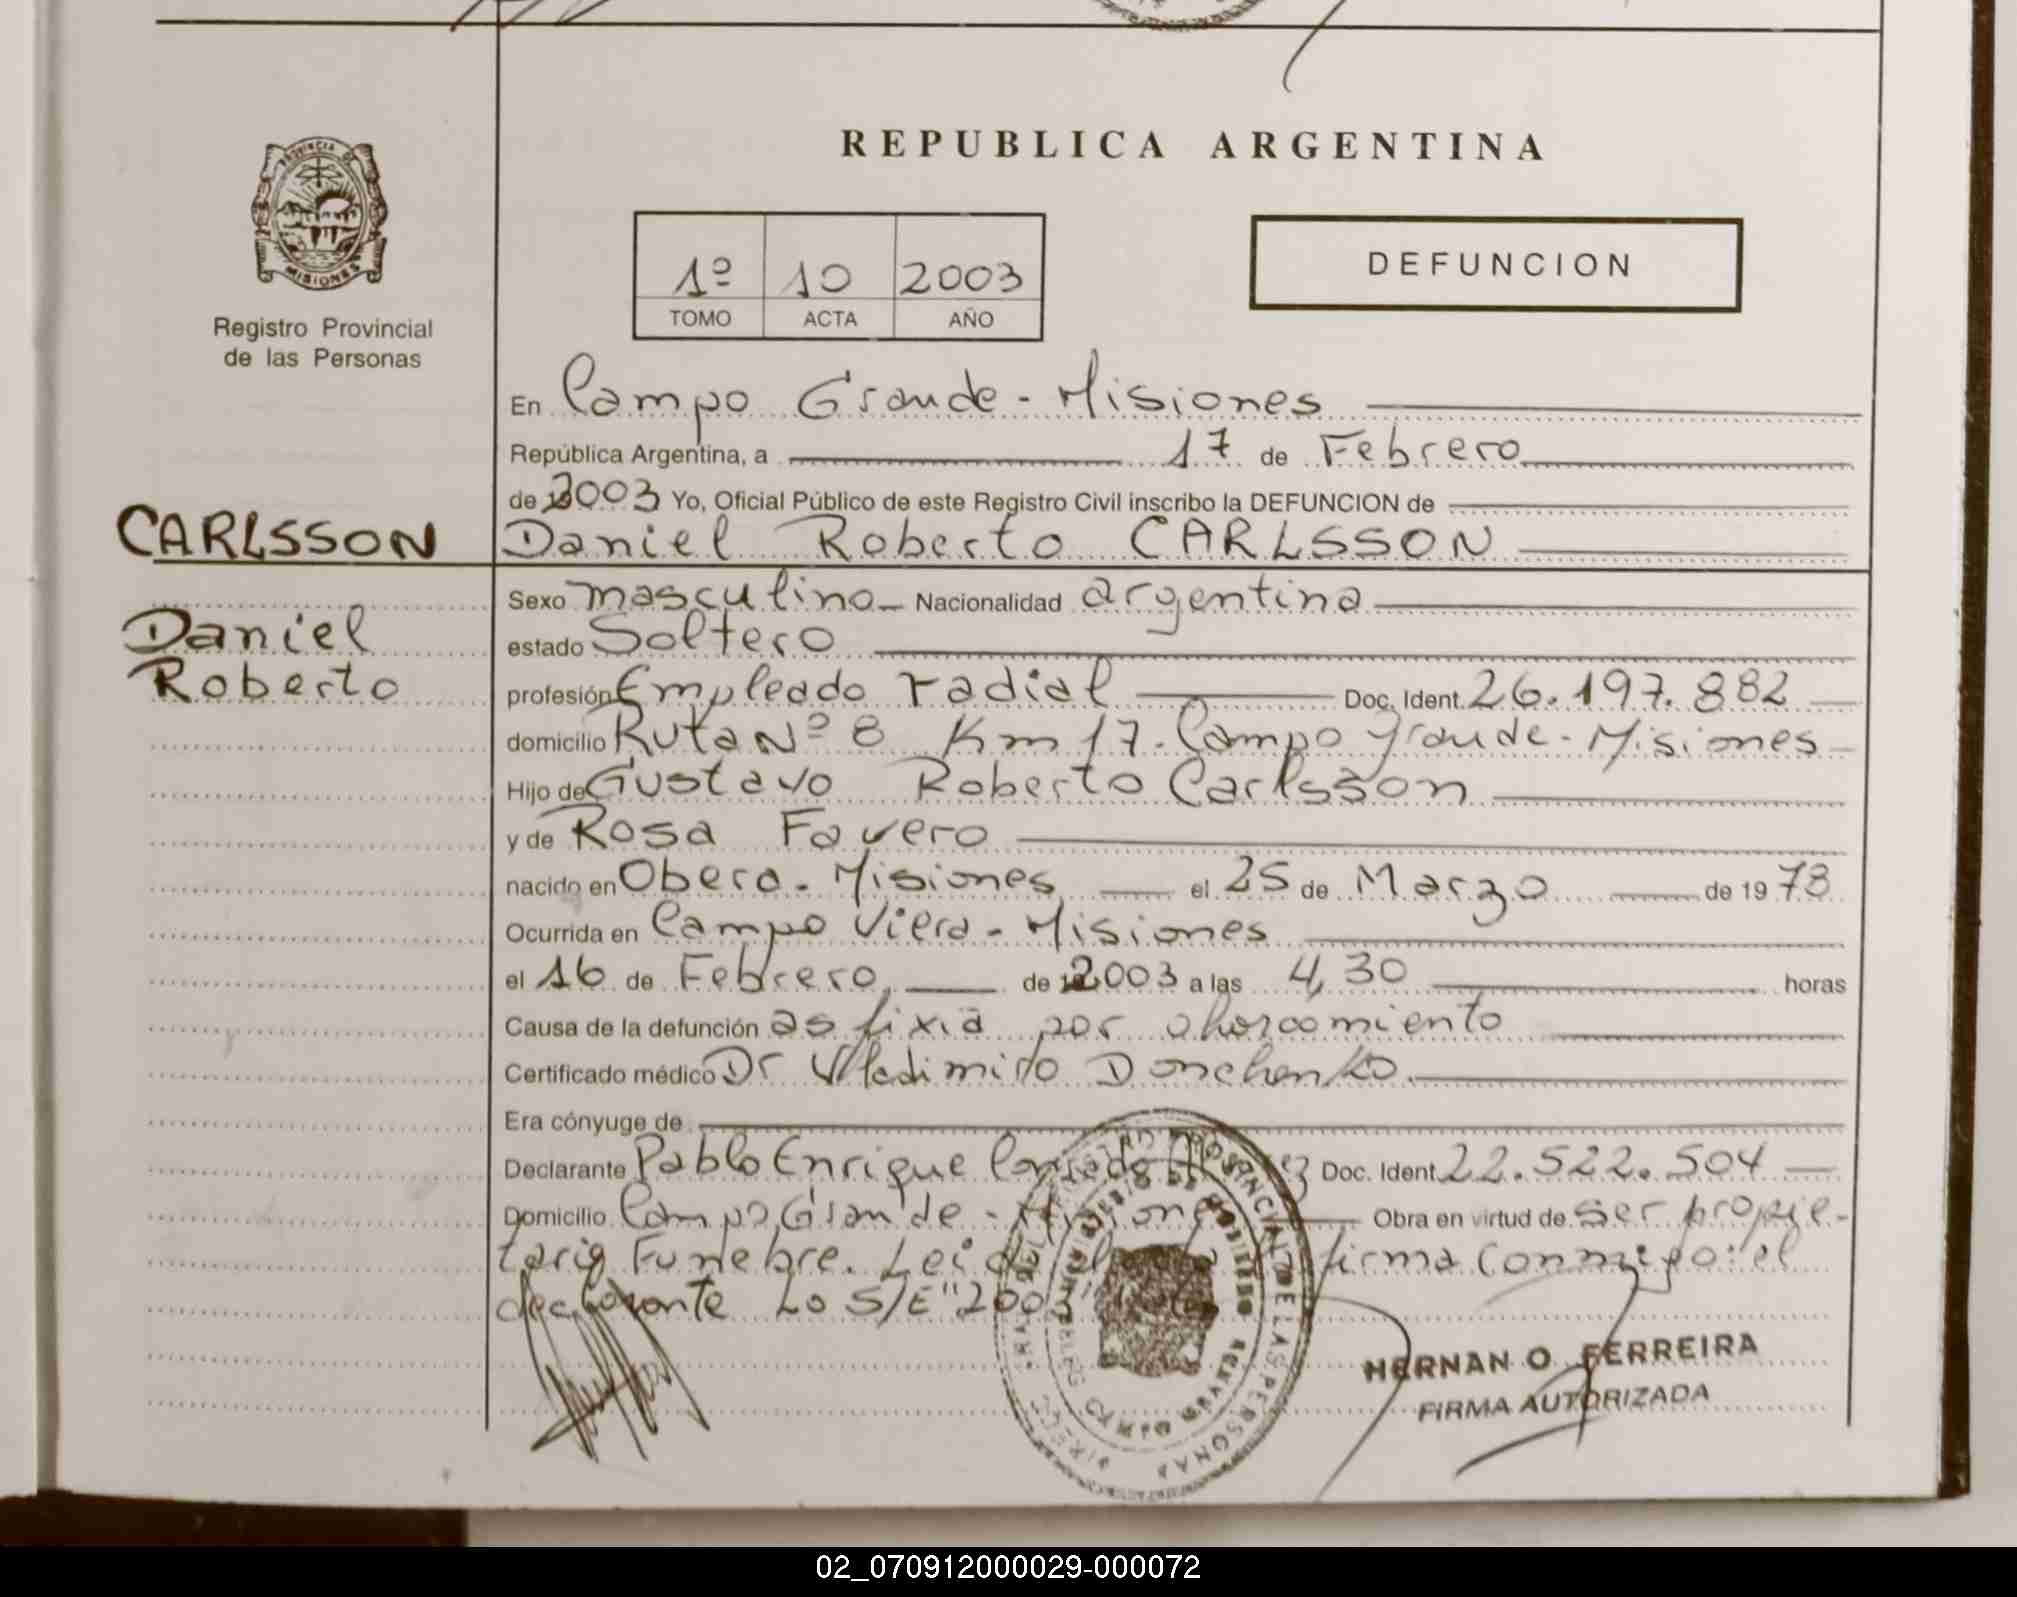 REPUBLICA ARGENTINA
PROVINCIA DE
MISIONES
Registro Provincial
de las Personas
1º 10 2003
TOMO ACTA AÑO
DEFUNCION
En Campo Grande - Misiones
República Argentina, a 17 de Febrero
de 2003 Yo, Oficial Público de este Registro Civil inscribo la DEFUNCION de
CARLSSON
Daniel Roberto CARLSSON
Daniel
Roberto
Sexo masculino - Nacionalidad argentina
estado Soltero
profesión Empleado radial Doc. Ident. 26.197.882
domicilio Ruta Nº 8 Km 17 - Campo Grande - Misiones
Hijo de Gustavo Roberto Carlsson
y de Rosa Favero
nacido en Obera - Misiones el 25 de Marzo de 1978
Ocurrida en Campo Viera - Misiones
el 16 de Febrero de 2003 a las 4,30 horas
Causa de la defunción asfixia por ahorcamiento
Certificado médico Dr Vladimiro Donchenko
Era cónyuge de
Declarante Pablo Enrique Doc. Ident. 22.522.504
Domicilio Campo Grande - Misiones Obra en virtud de ser propie-
tario Funebre. Leida el acta la firma conmigo: el
declarante Lo S/E "2003"
HERNAN O. FERREIRA
FIRMA AUTORIZADA
02_070912000029-000072